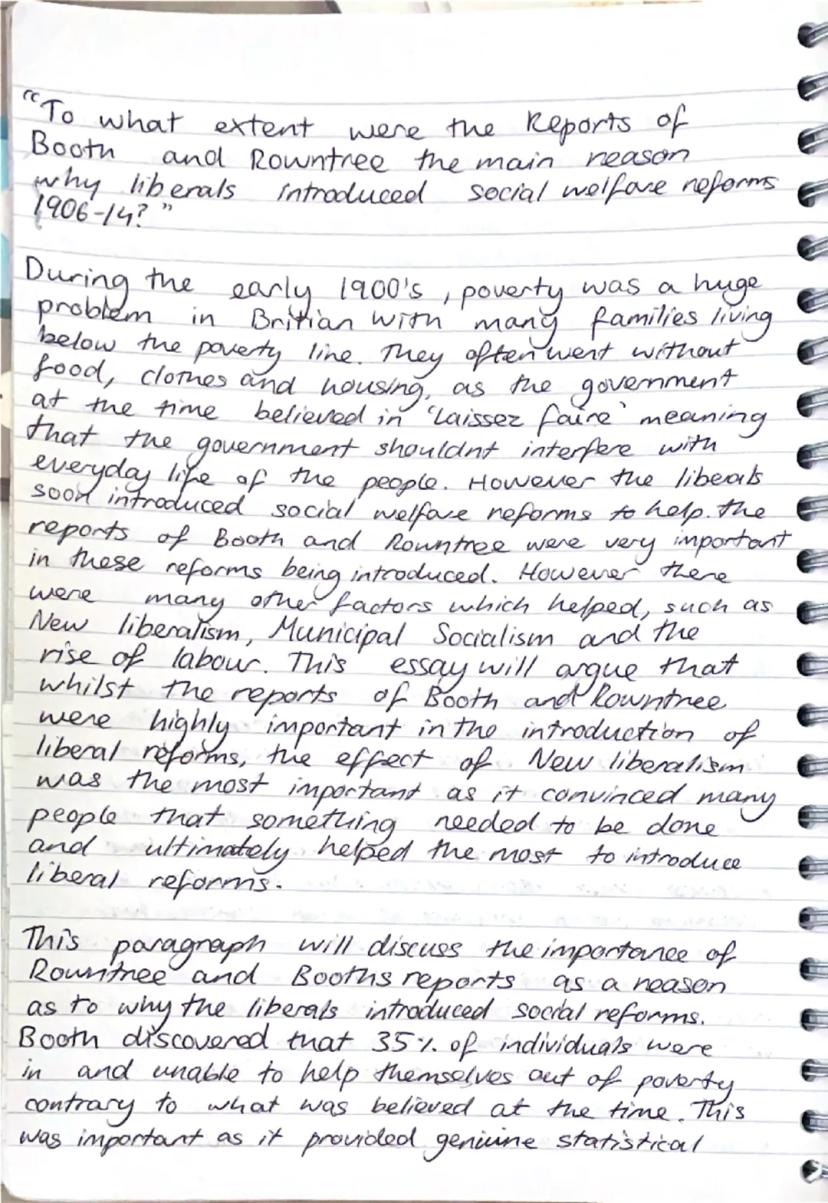 "To what extent were the Reports of
Booth and Rowntree the main reason
why liberals introduced social welfare reforms
1906-14?"
During the early 1900's, poverty was a huge
problem in Britian with many families living
below the poverty line. They often went without
food, clothes and housing, as the government
at the time believed in 'laissez faire' meaning
that the government shouldnt interfere with
everyday life of the people. However the liberals
soon introduced social welfare reforms to help. the
reports of Booth and Rowntree were very important
in these reforms being introduced. However there
were many other factors which helped, such as
New liberalism, Municipal Socialism and the
rise of labour. This essay will argue that
whilst the reports of Booth and Rowntree
were highly important in the introduction of
liberal reforms, the effect of New liberalism
was the most important as it convinced many
people that something needed to be done
and ultimately helped the most to introduce
liberal reforms.
This paragraph will discuss the importance of
Rowntree and Booths reports as a reason
as to why the liberals introduced social reforms.
Booth discovered that 35% of individuals were
in and unable to help themselves out of poverty
contrary to what was believed at the time. This
was important as it provided genuine statistical